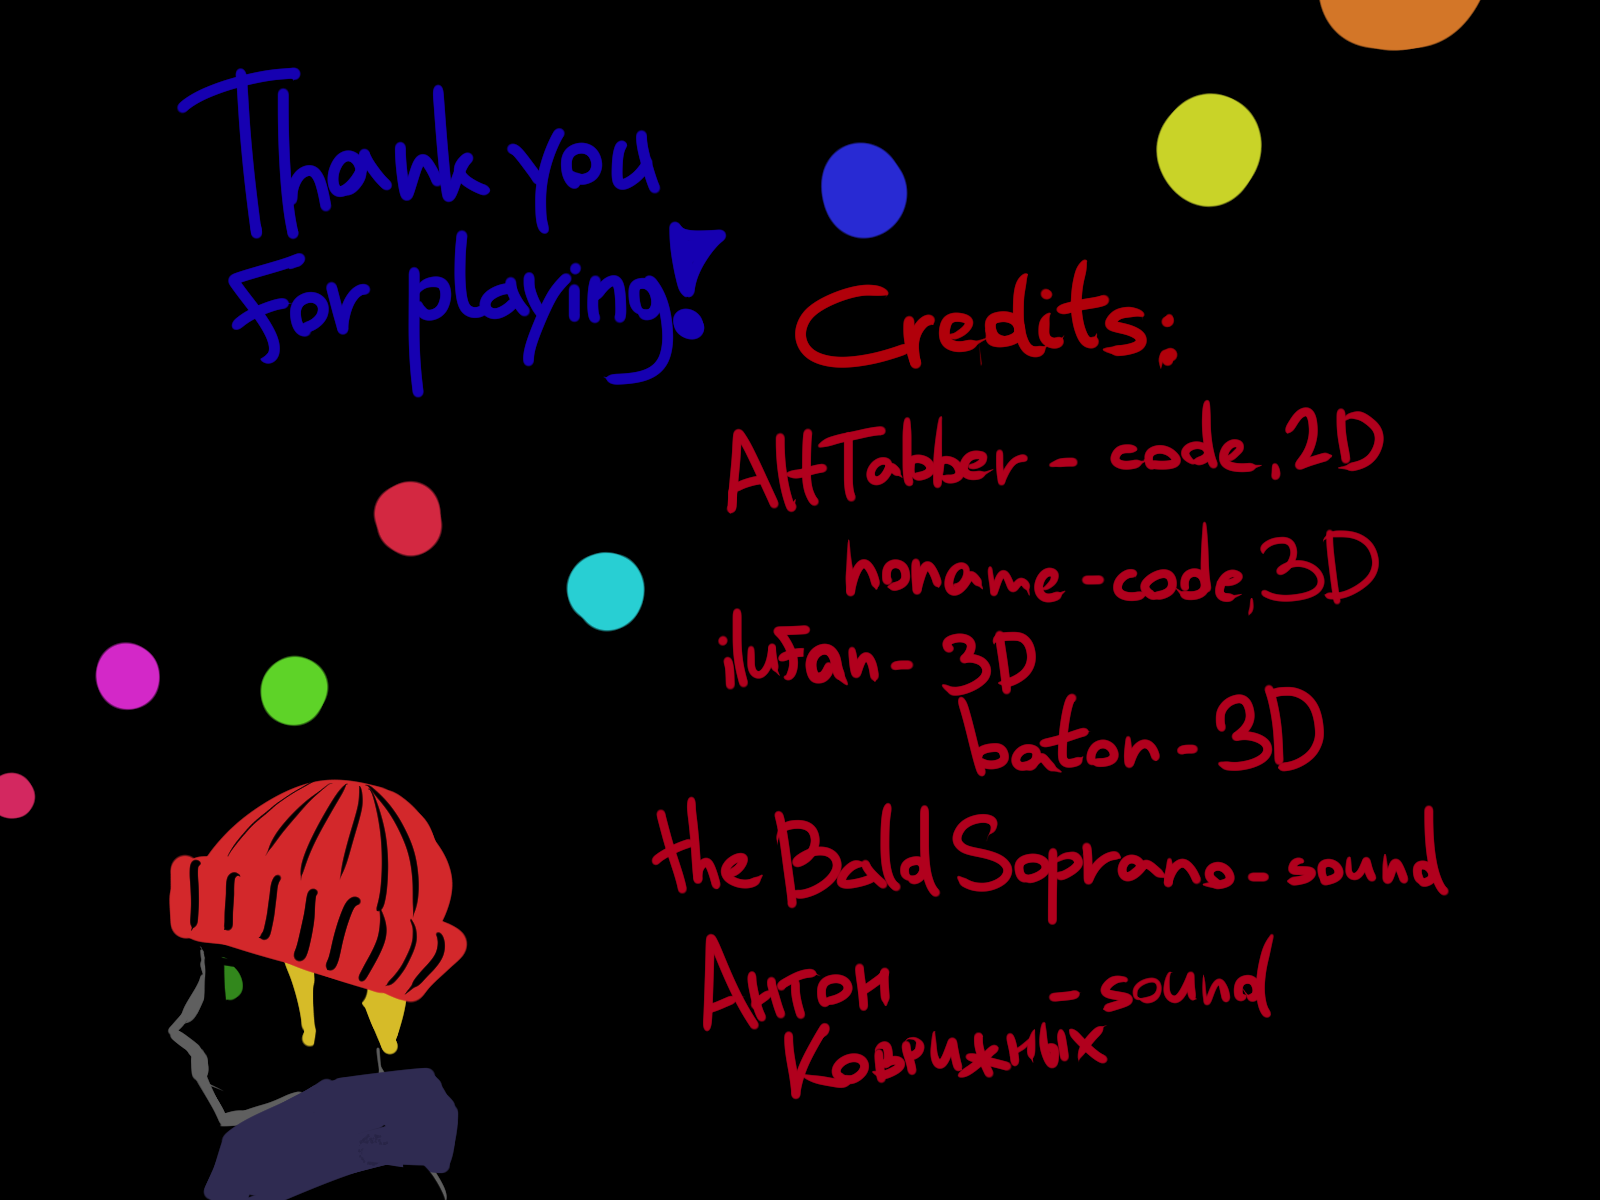 Thank you
For playing!
Credits:
AHTabber - code, 2D
honame - code, 3D
ilufan - 3D
baton - 3D
the Bald Soprano - sound
Антон - sound
Коврижных